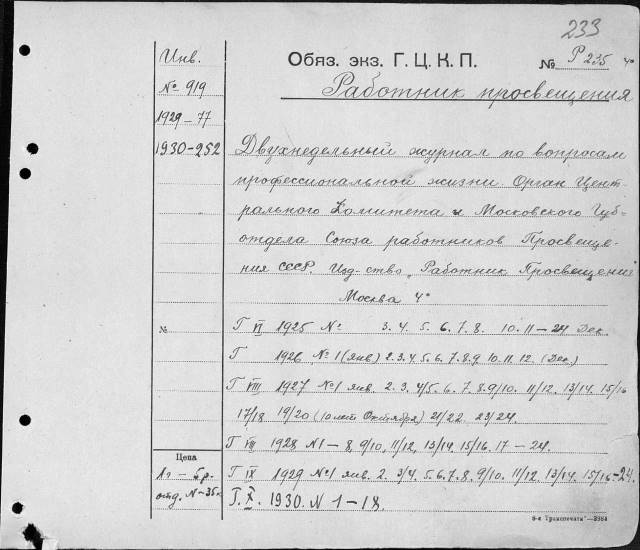 233
Инв.
№ 919
1929-77
1930-252
Обяз. экз. Г. Ц. К. П. № Р 235 4°
Работник просвещения
Двухнедельный журнал по вопросам
профессиональной жизни. Орган Цент-
рального Комитета и Московского Губ-
отдела Союза работников Просвеще-
ния СССР. Изд-ство „Работник Просвещения
Москва 4°
№ Г VI 1925 № 3. 4. 5. 6. 7. 8. 10. 11 – 24 Дек.
Г 1926 № 1 (янв) 2. 3. 4. 5. 6. 7. 8. 9 10. 11. 12. (Дек.)
Г VIII 1927 №1 янв. 2. 3. 4/5. 6. 7. 8. 9/10. 11/12. 13/14. 15/16
17/18 19/20 (10 лет Октября) 21/22. 23/24.
Г VIII 1928 N1 – 8, 9/10, 11/12, 13/14, 15/16. 17 – 24.
Цена
1 г – 5 р.
отд. N – 35к
Г IX 1929 №1 янв. 2. 3/4. 5. 6. 7. 8. 9/10. 11/12. 13/14. 15/16-24.
Г. X. 1930. N 1-18.
5-я „Транспечати"—3984